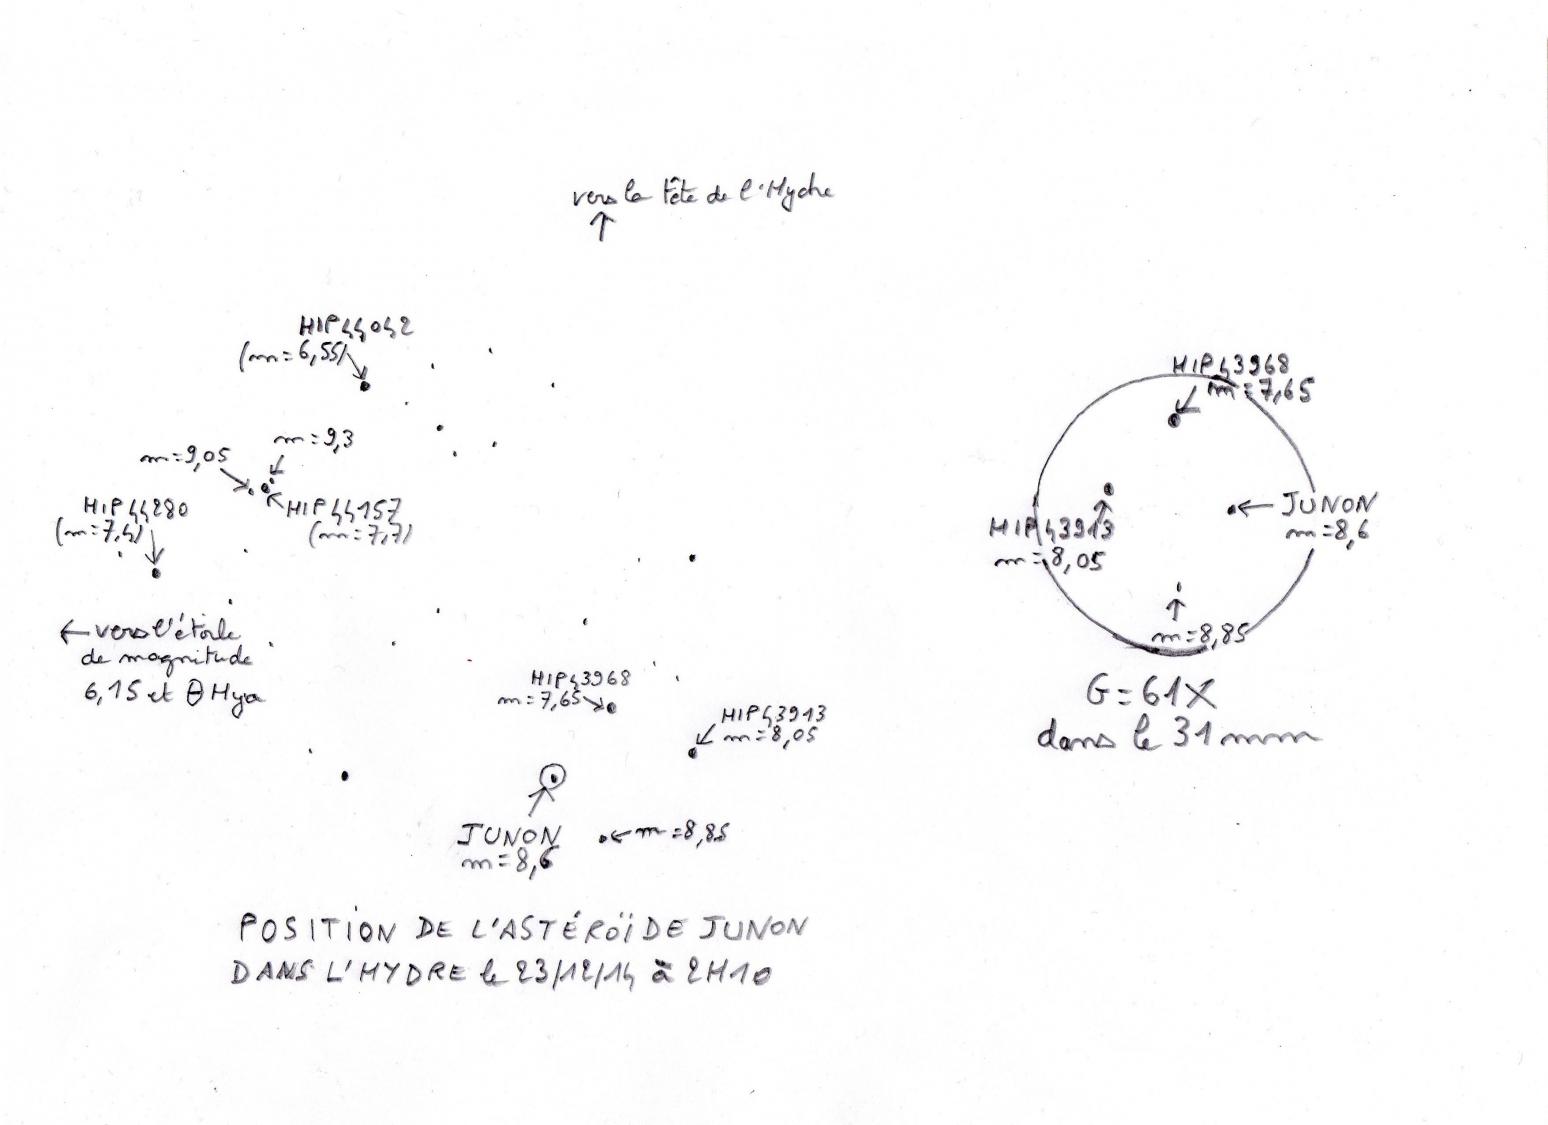 vers la tête de l'Hydre
↑
HIP44042
(m=6,55)
m=9,3
m=9,05
HIP44280
(m=7,4)
HIP44157
(m=7,7)
← vers l'étoile
de magnitude
6,15 et θ Hya
HIP43968
m=7,65
HIP43913
m=8,05
JUNON
m=8,6
← m=8,85
POSITION DE L'ASTÉROÏDE JUNON
DANS L'HYDRE le 23/12/14 à 2H10
HIP43968
m=7,65
← JUNON
m=8,6
HIP43913
m=8,05
m=8,85
G=61X
dans le 31mm